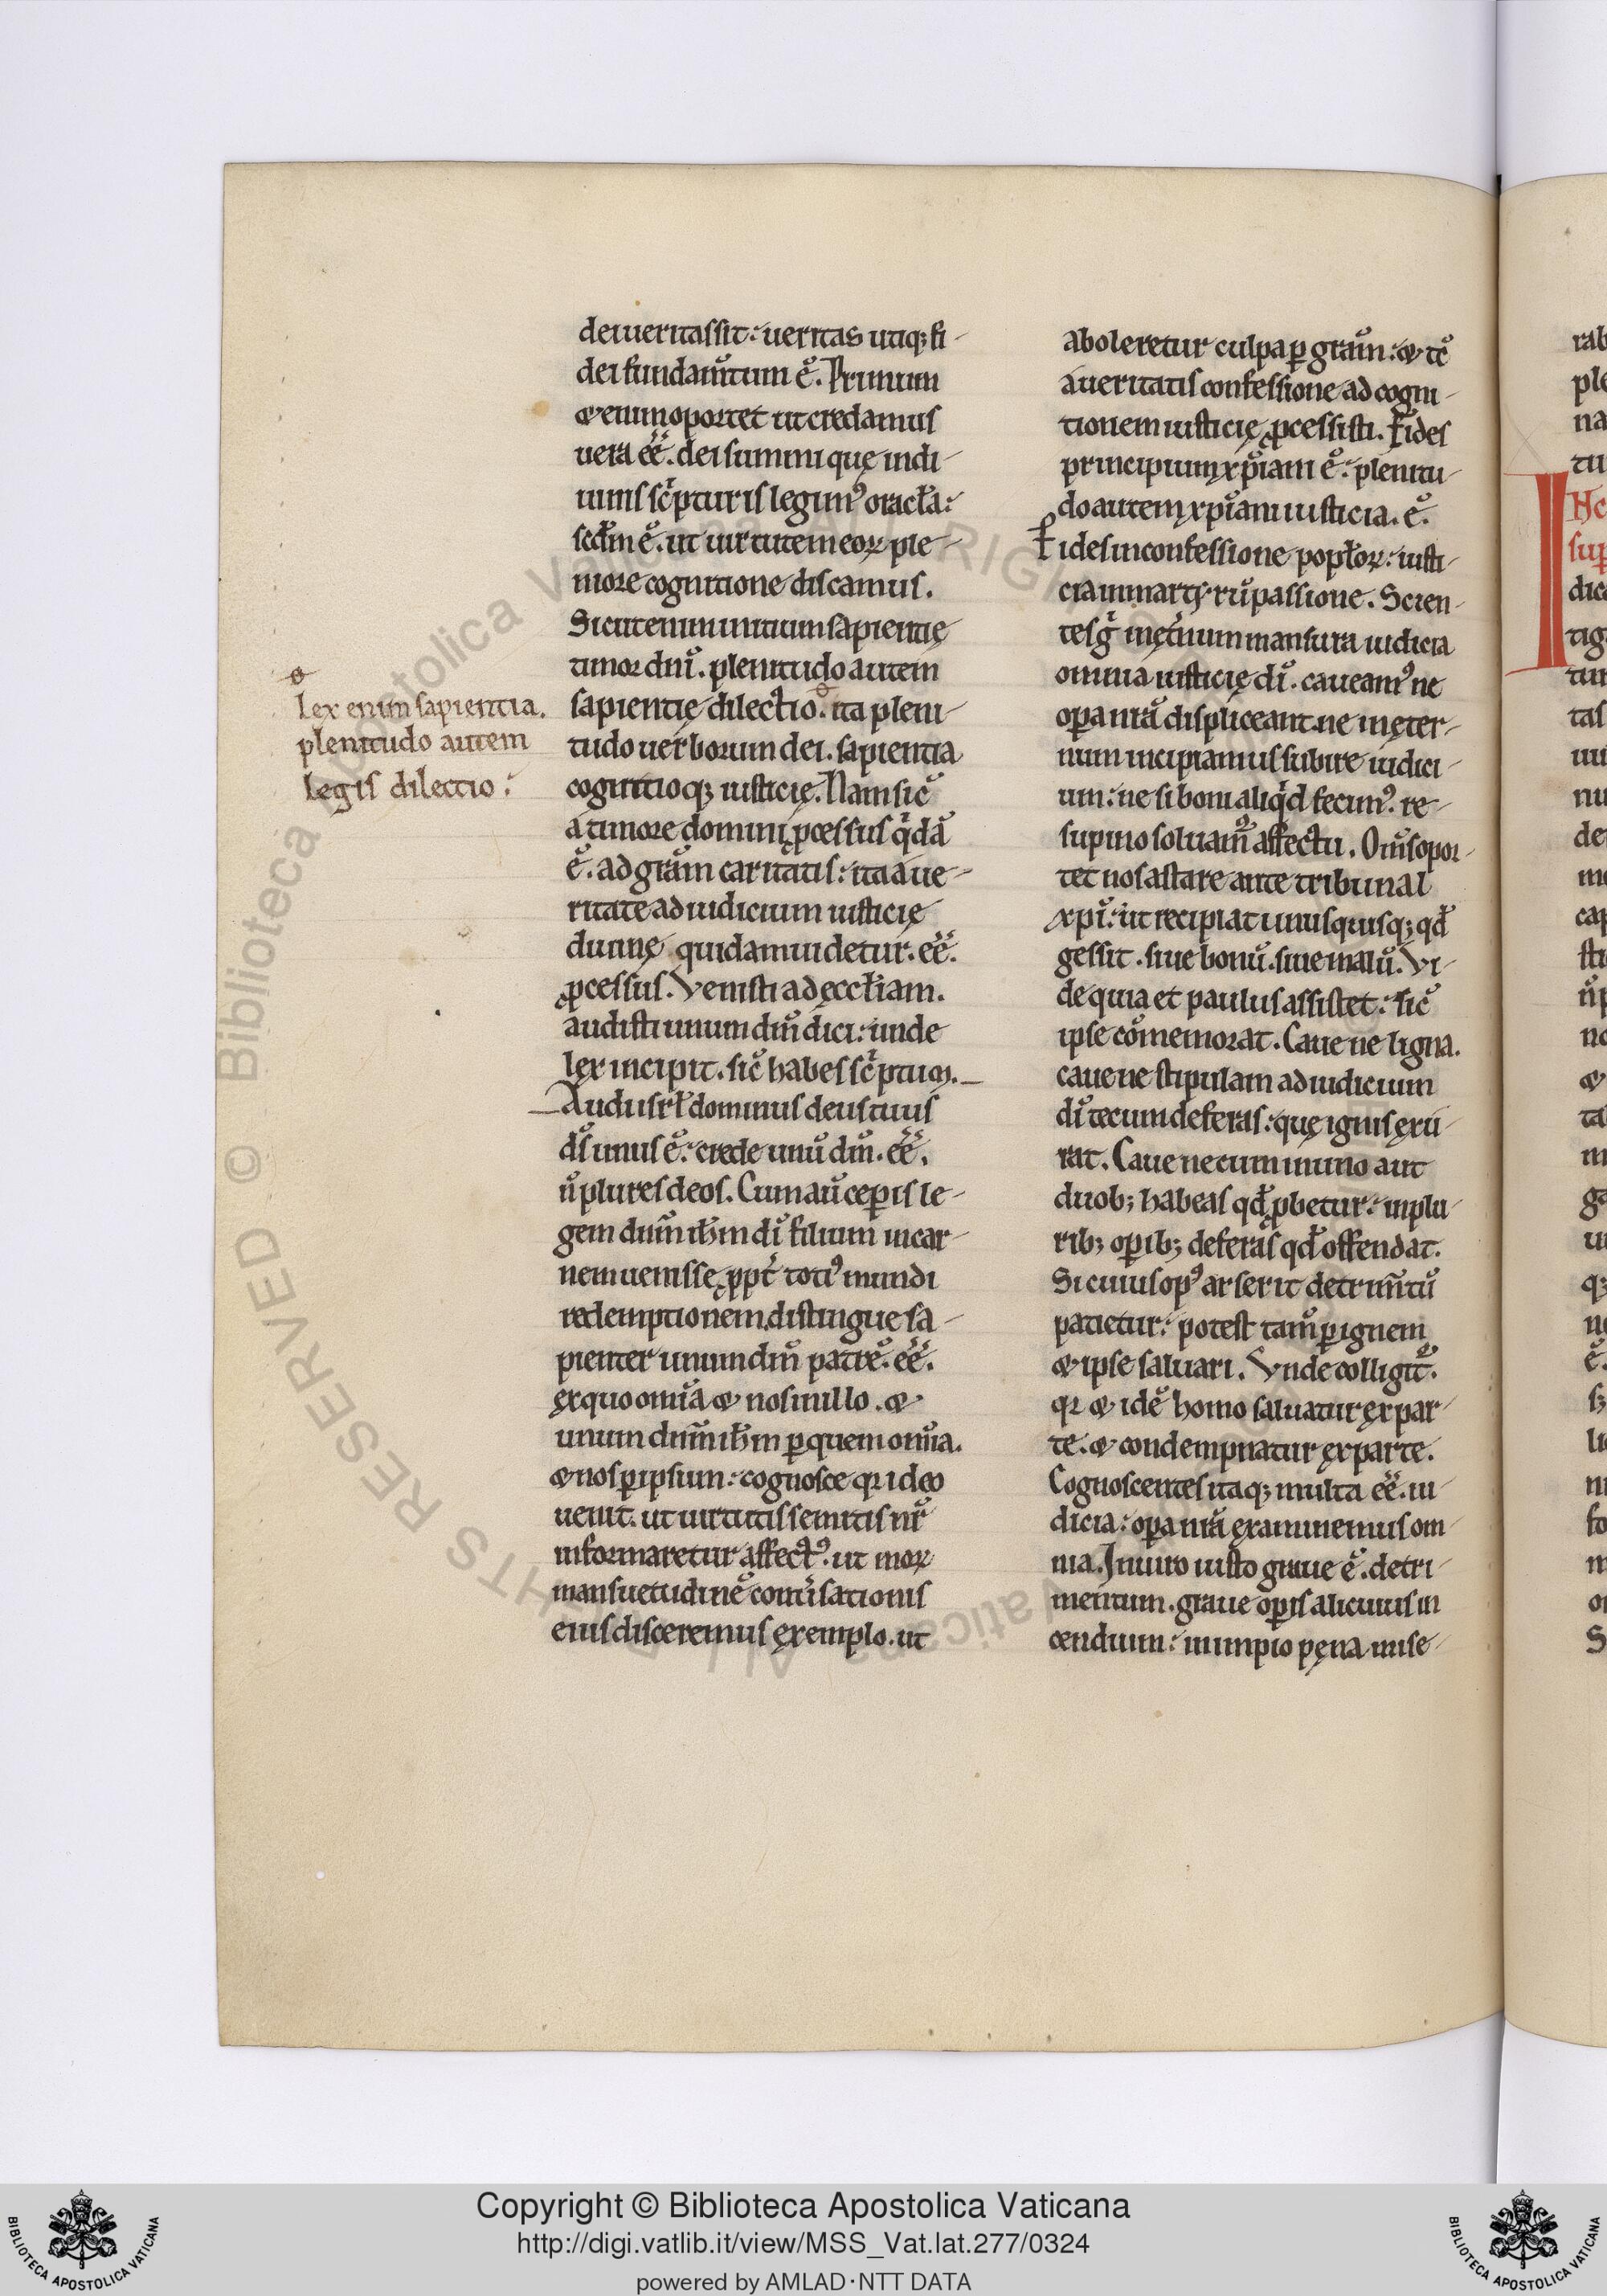 dei ueritas sit: ueritas utiq; fi-
dei fundam̄tum ē. Primum
& enim oportet ut credamus
uera eē. dei summi quę in di-
uinis sc̄pturis legimꝰ oracła:
scd̄m ē. ut uirtutem eoꝝ ple-
niore cognitione discamus.
Sicut enim initium sapientię
timor dn̄i. plenitudo autem
sapientię dilectio. ita pleni-
tudo uerborum dei. sapientia
cognitioq; iusticię. Nam sic̄
a timore domini ꝓcessus q̄dā
ē. ad gr̄am caritatis: ita a ue-
ritate ad iudicium iusticię
diuinę quidam uidetur. eē.
ꝓcessus. Venisti ad ęccłiam.
audisti unum dm̄ dici: unde
lex incipit. sic̄ habes sc̄ptum.
Audi isrł dominus deus tuus
ds̄ unus ē: crede unū dm̄. eē.
n̄ plures deos. Cum aū ceꝑis le-
gem dn̄m ih̄m di̅ filium in car-
nem uenisse ꝓpt̄ totiꝰ mundi
redemptionem. distingue sa-
pienter unum dm̄ patrē. eē.
ex quo omīa & nos in illo. &
unum dn̄m ih̄m ꝑ quem omīa.
& nos ꝑ ipsum: cognosce qꝛ ideo
uenit. ut uirtutis semitis nr̄
informaretur affectꝰ. ut moꝝ
mansuetudinē conūsationis
eius disceremus exemplo. ut
ꝋ
Lex enim sapientia.
plenitudo autem
legis dilectio:
aboleretur culpa ꝑ gr̄am: & tē
a ueritatis confessione ad cogni-
tionem iusticię ꝓcessisti. Fides
principium xp̄iani ē: plenitu-
do autem xp̄iani iusticia. ē.
Fides in confessione popłoꝝ: iusti-
cia in martyrū passione. Scien-
tes g̊ in ęt̄num mansura iudicia
omnia iusticię di̅. caueamꝰ ne
oꝑa nr̄a displiceant. ne in ęter-
num incipiamus subire iudici-
um: ne si boni aliq̄d fecimꝰ. re-
supino soluam̄ affectu. Om̄s opor-
tet nos astare ante tribunal
xp̄i: ut recipiat unusquisq; qd̄
gessit. siue bonū. siue malū. Vi-
de quia et paulus assistet: sic̄
ipse cōmemorat. Caue ne ligna.
caue ne stipulam ad iudicium
di̅ tecum deferas: quę ignis exu-
rat. Caue ne cum in uno aut
duob; habeas qd̄ ꝓbetur: in plu-
rib; oꝑib; deferas qd̄ offendat.
Si cuius opꝰ arserit detrim̄tū
patietur: potest tam̄ ꝑ ignem
& ipse saluari. Vnde colligit̄.
qꝛ & idē homo saluatur ex par-
te. & condempnatur ex parte.
Cognoscentes itaq; multa eē. iu-
dicia: oꝑa nr̄a examinemus om-
nia. In uiro iusto graue ē. detri-
mentum. graue oꝑis alicuius in
cendium: in impio pęna mise-
rab
ple
na
tu
Hc
sup
dica
tiga
tim
tas
Copyright © Biblioteca Apostolica Vaticana
http://digi.vatlib.it/view/MSS_Vat.lat.277/0324
powered by AMLAD·NTT DATA
BIBLIOTECA APOSTOLICA VATICANA
BIBLIOTECA APOSTOLICA VATICANA